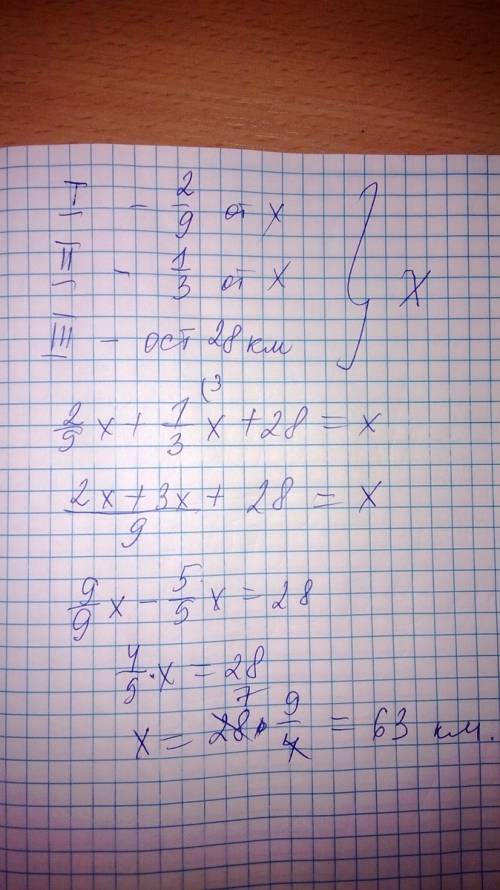 I - 2/9 от x
II - 1/3 от x } X
III - ост 28 км
2/9 x + 1/3 (3 x + 28 = x
(2x + 3x)/9 + 28 = x
9/9 x - 5/9 x = 28
4/9 · x = 28
x = 28 7 · 9/4 = 63 км.